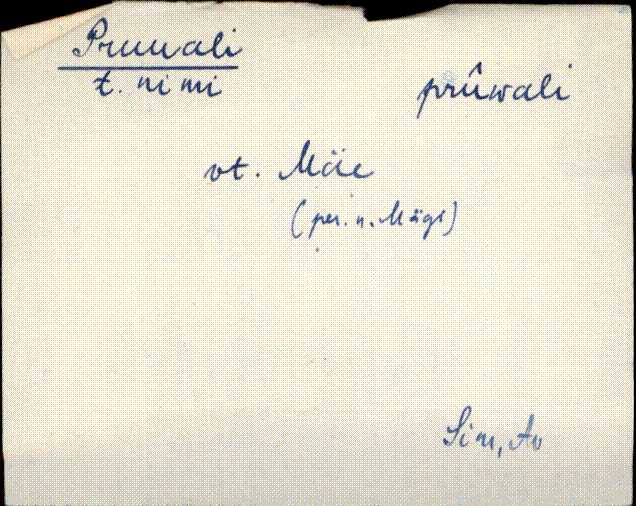 Pruuali
t. nimi
prûwali
vt. Mäe
(per. n. Mägi)
Sim, Av